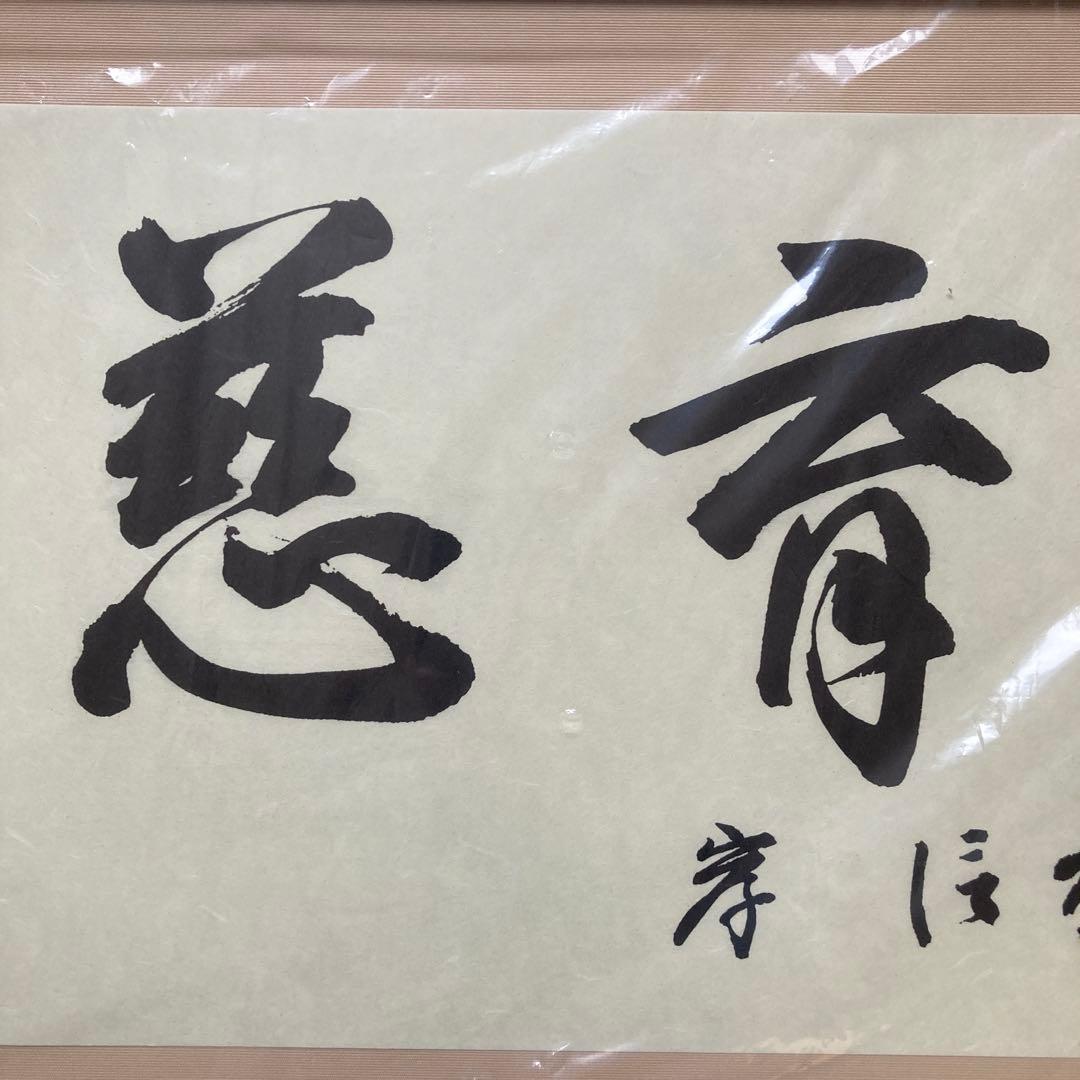 慈育
岸信